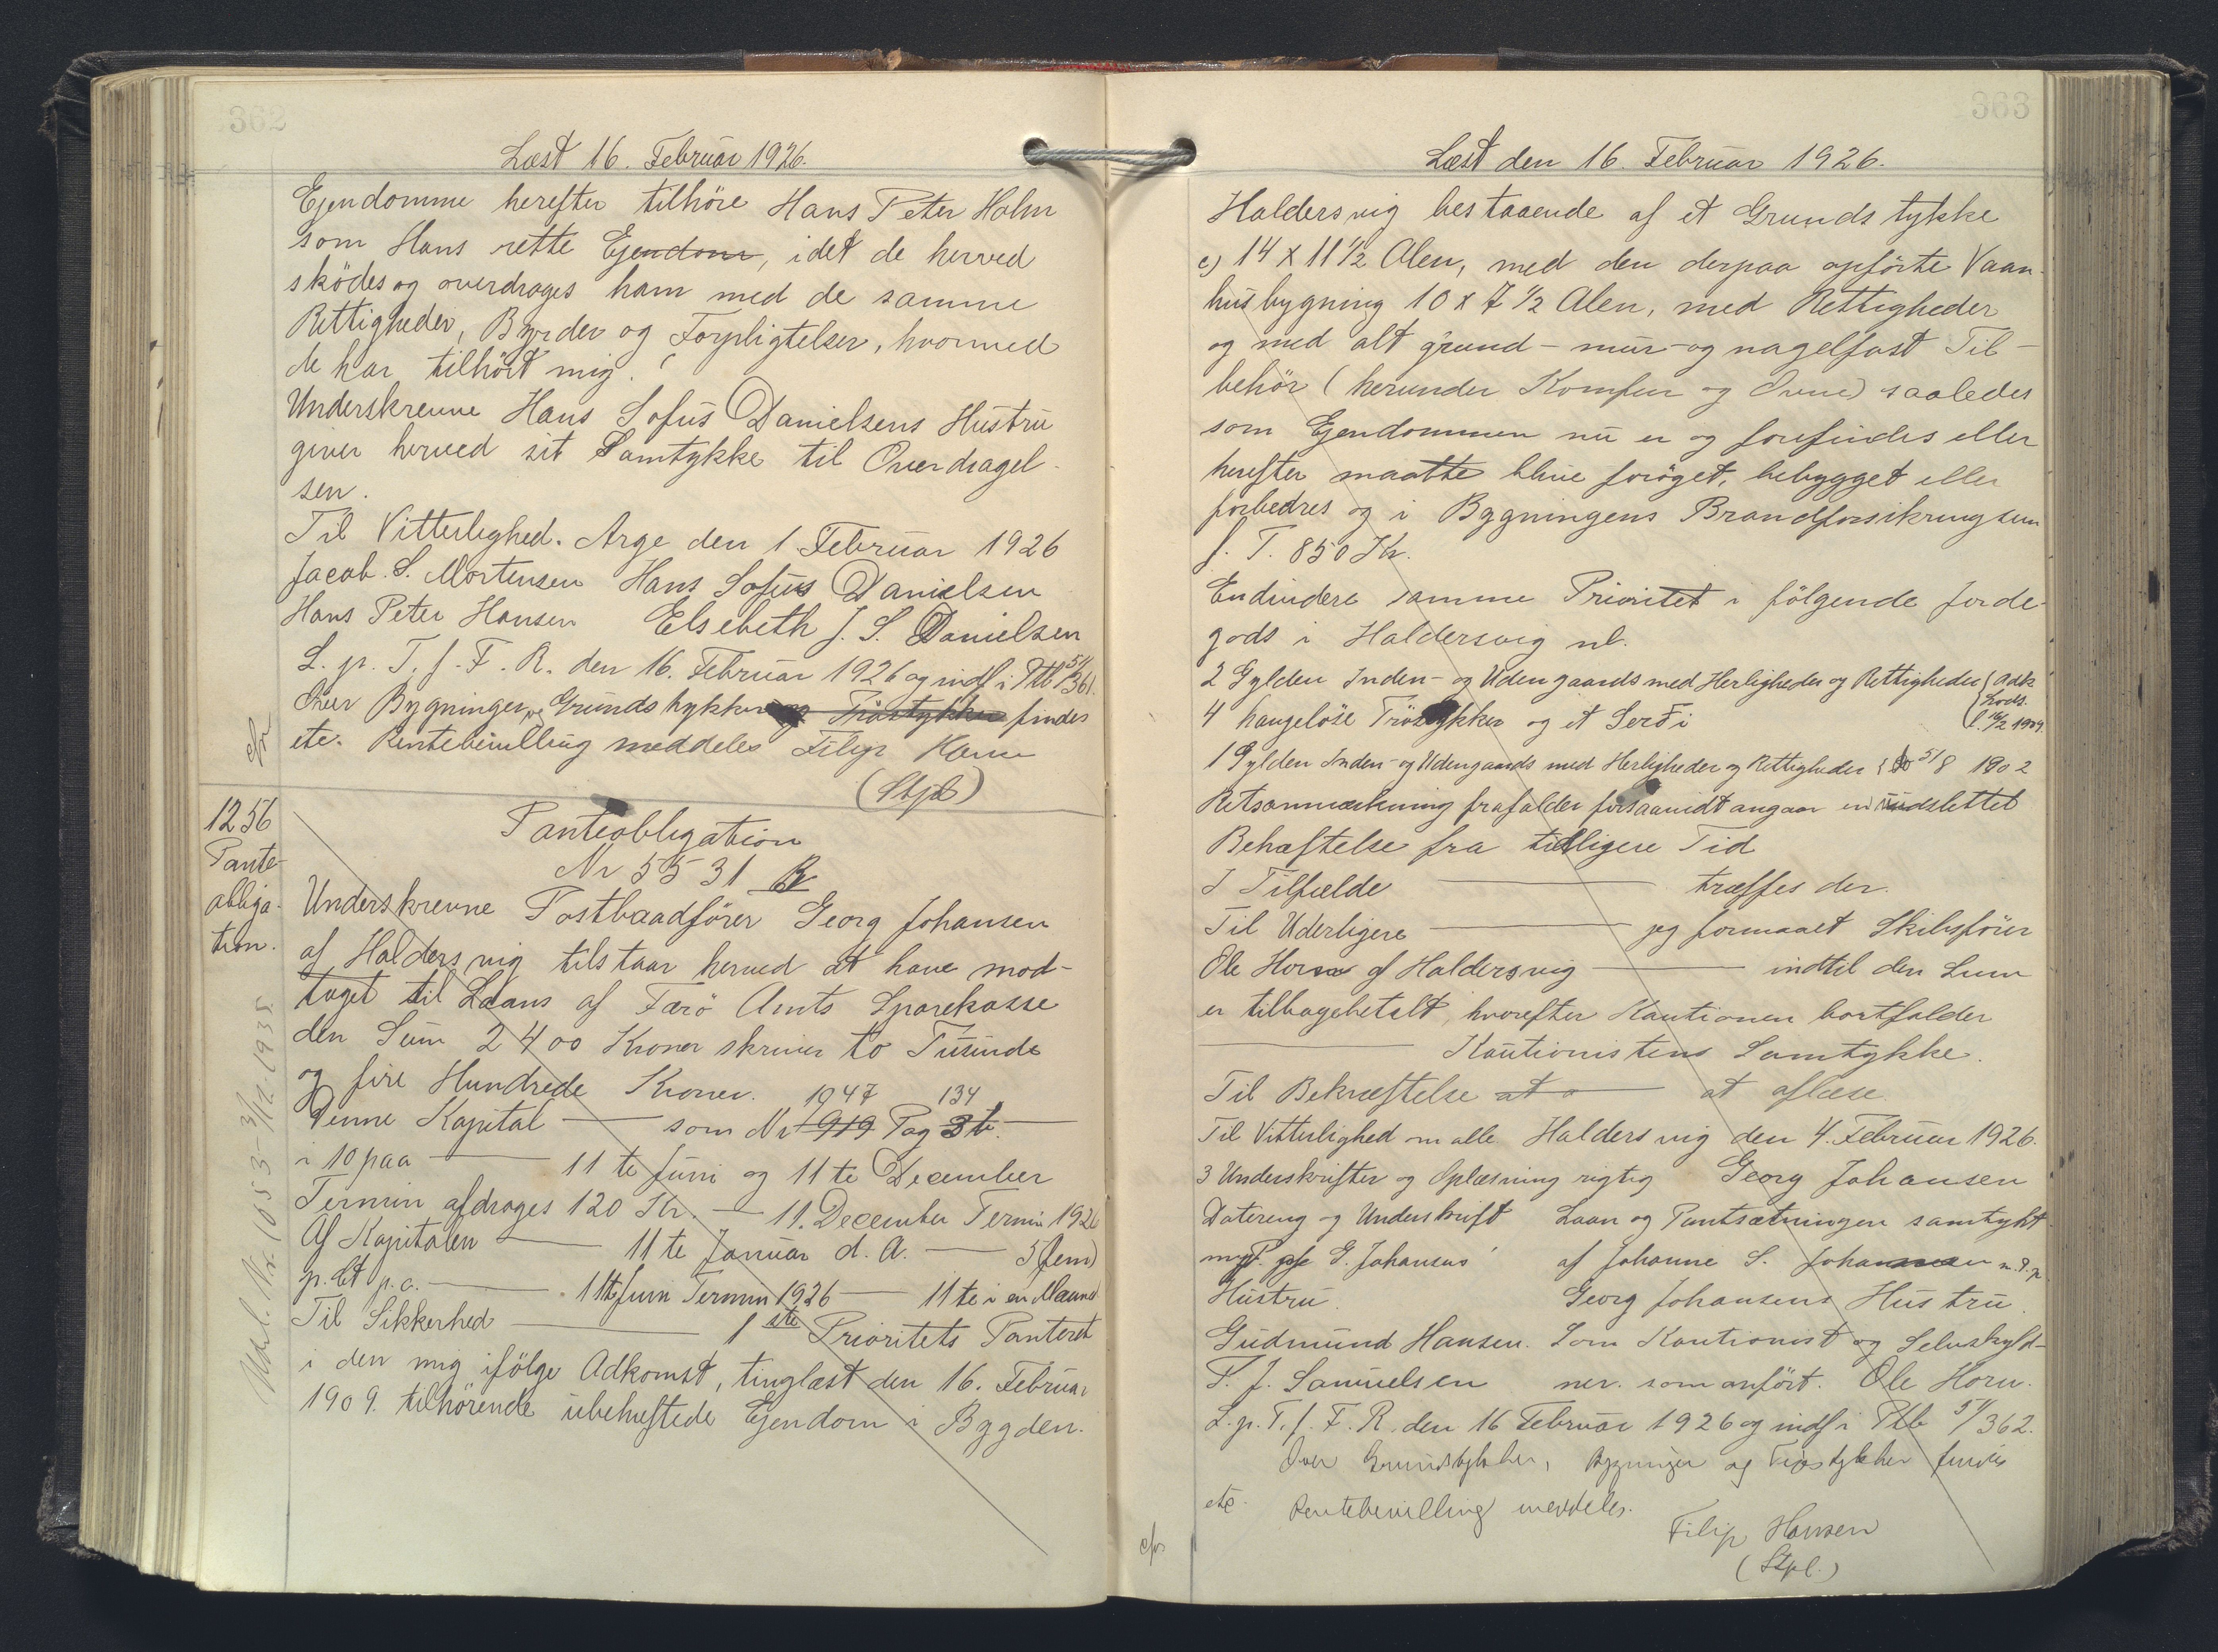 362
Læst 16. Februar 1926.
Ejendomme herefter tilhöre Hans Peter Holm
som Hans rette Ejendom, idet de herved
sködes og overdrages ham med de samme
Rettigheder, Byrder og Forpligtelser, hvormed
de har tilhört mig.
Underskrevne Hans Sofus Danielsens Hustru
giver herved sit Samtykke til Overdragel-
sen.
Til Vitterlighed. Arge den 1 Februar 1926
Jacob. S. Mortensen Hans Sofus Danielsen
Hans Peter Hansen Elsebeth J. S. Danielsen
L. p. T. f. F. R. den 16. Februar 1926 og indf i Ptb 51/361.
Over Bygninger, Grundstykker og Tröstykker findes
etc. Rentebevilling meddeles Filip
(Stpl)
cfr
1256
Pante-
obliga-
tion.
Panteobligation
Nr 5531 B
Underskrevne Postbaadförer Georg Johansen
af Haldersvig tilstaar herved at have mod-
taget til Laans af Færö Amts Sparekasse
den Sum 2400 Kroner skriver to Tusinde
og fire Hundrede Kroner. 1947 134
Denne Kapital — som Nr 919 Pag 36. —
i 10 paa — 11te Juni og 11te December
Termin afdrages 120 Kr. — 11. December Termin 1926
Af Kapitalen — 11te Januar d. A. — 5 (fem)
p. Ct p. a. — 11te Juni Termin 1926 — 11te i en Maaned
Til Sikkerhed — 1ste Prioritets Panteret
i den mig ifölge Adkomst, tinglæst den 16. Februar
1909. tilhörende ubehæftede Ejendom i Bygden.
Udsl. Nr. 1053 - 3/12. 1935
363
Læst den 16. Februar 1926.
Haldersvig bestaaende af et Grundstykke
c) 14 x 11 1/2 Alen, med den derpaa opförte Vaan-
husbygning 10 x 7 1/2 Alen, med Rettigheder
og med alt grund- mur- og nagelfast Til-
behör (herunder Komfur og Ovne) saaledes
som Ejendommen nu er og forefindes eller
herefter maatte blive foröget, bebygget eller
forbedres og i Bygningens Brandforsikringsum
f. T. 850 Kr.
Endvidere samme Prioritet i fölgende Jorde-
gods i Haldersvig nl.
2 Gylden Inden- og Udengaards med Herligheder og Rettigheder { Adk
4 haugelöse Tröstykker og et Serd i
Skods. l. 16/2 1909.
1 Gylden Inden- og Udengaards med Herligheder og Rettigheder { 5/8 1902
Retsanmærkning frafalder forsaavidt angaar en udslettet
Behæftelse fra tidligere Tid
I Tilfælde — træffes der.
Til Yderligere — jeg formaaet Skibsförer
Ole Horn af Haldersvig — indtil den Sum
er tilbagebetalt, hvorefter Kautionen bortfalder
— Kautionistens Samtykke.
Til Bekræftelse — at aflæse
Til Vitterlighed om alle Haldersvig den 4. Februar 1926.
3 Underskrifter og Oplæsning rigtig Georg Johansen
Datering og Underskrift Laan og Pantsætningen samtykt
G. Johansens af Johanne S. Johannesen m. f. p.
Hustru. Georg Johansens Hustru.
Gudmund Hansen. Som Kautionist og Selvskyld-
P. J. Samuelsen ner. som anfört. Ole Horn.
L. p. T. f. F. R. den 16 Februar 1926 og indf i Ptb 51/362.
Over Grundstykker, Bygninger og Tröstykker findes
etc. Rentebevilling meddeles.
Filip Hansen
(Stpl.)
cfr